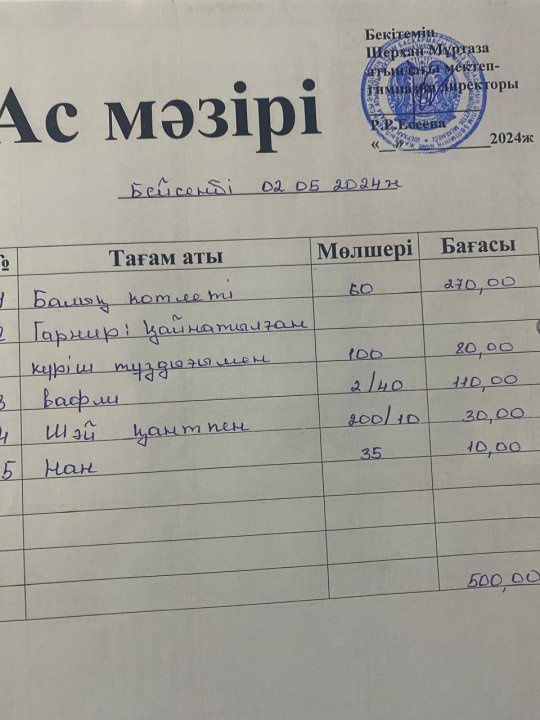 Бекітемін
Шерхан Мұртаза
атындағы мектеп-
гимназия директоры
Р.Р.Есеева
«__»____________2024ж
Ас мәзірі
Бейсенбі 02 05 2024ж
№ Тағам аты Мөлшері Бағасы
1 Балық котлеті 60 270,00
2 Гарнир: Қайнатылған
күріш тұздығымен 100 80,00
3 вафли 2/40 110,00
4 Шәй қантпен 200/10 30,00
5 Нан 35 10,00
500,00